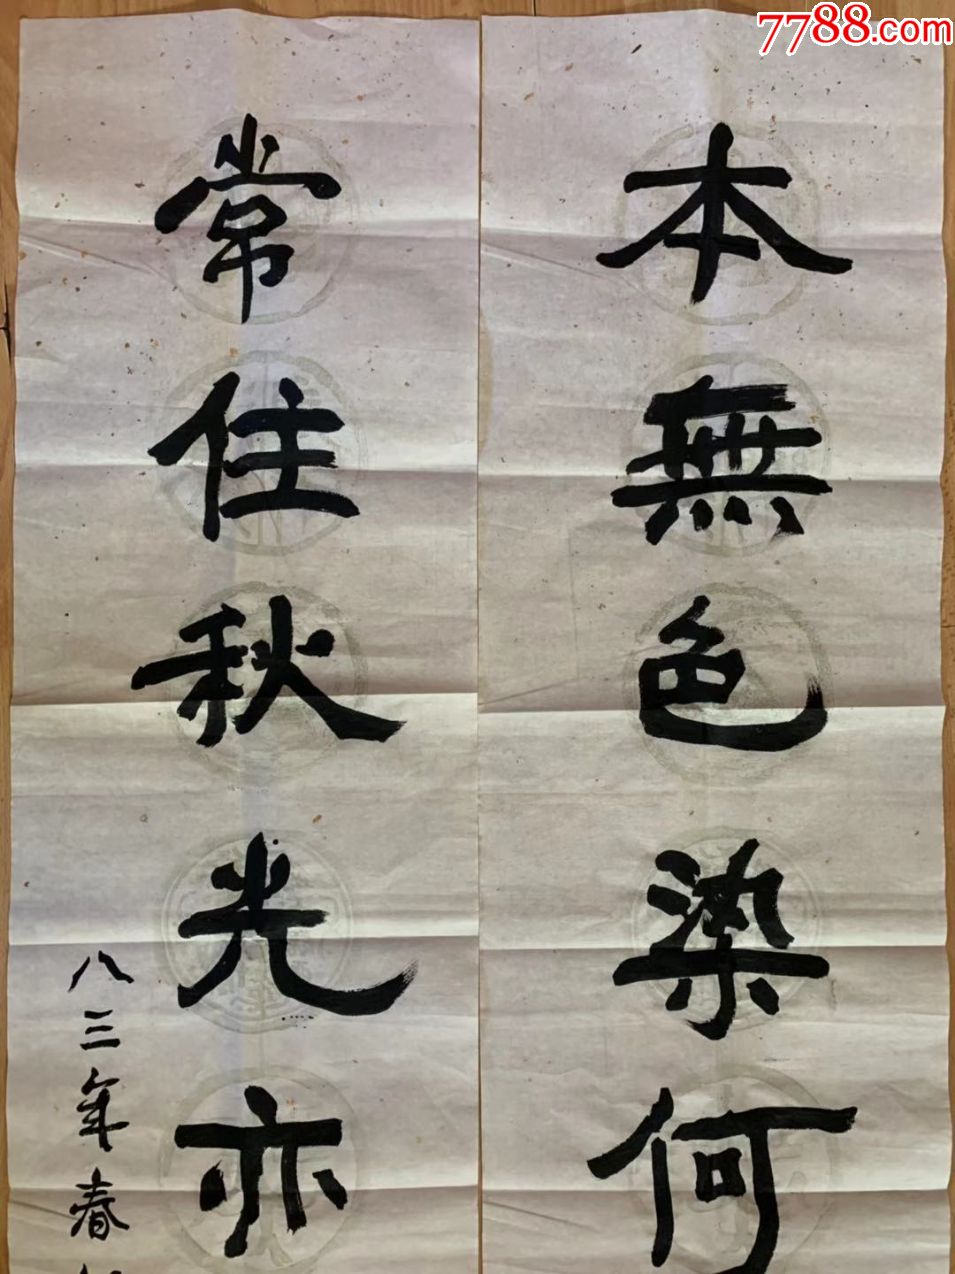 7788.com
本無色染何
常住秋光亦
八三年春